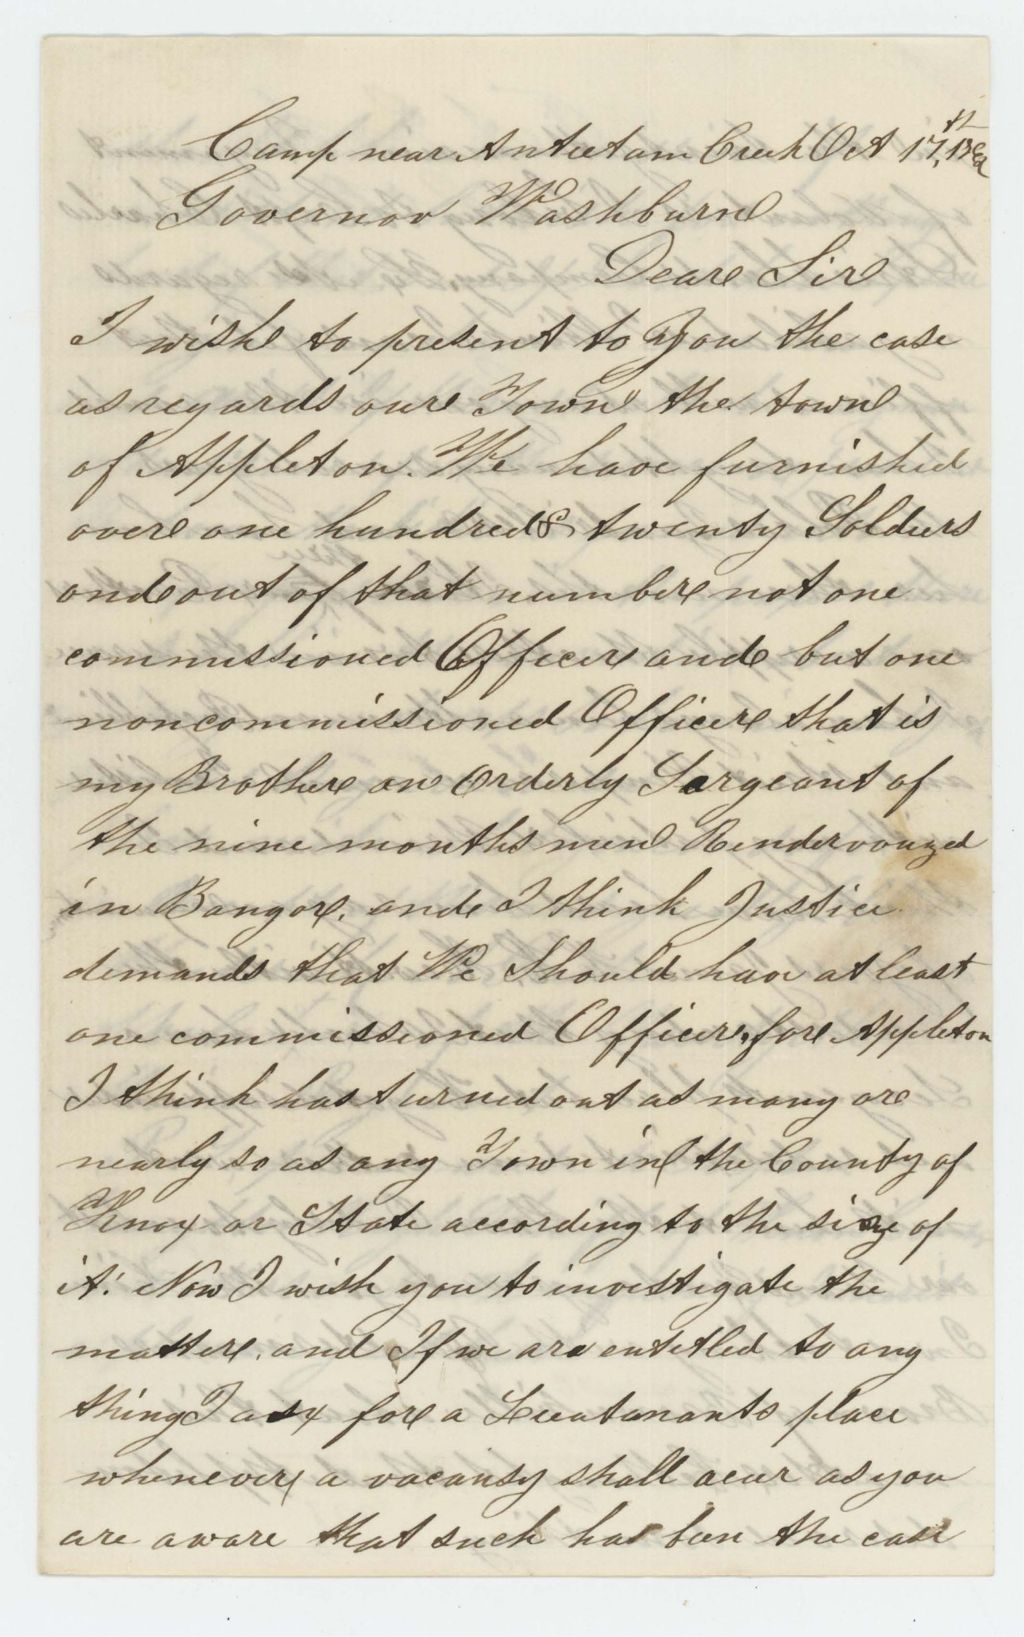 Camp near Antietam Creek Oct 17th, 1862
Governor Washburn
Dear Sir
I wish to present to You the case
as regards our Town the town
of Appleton. We have furnished
over one hundred & twenty Soldiers
and out of that number not one
commissioned Officer and but one
noncommissioned Officer that is
my Brother an Orderly Sargeant of
the nine months men Rendervouzed
in Bangor, and I think Justice
demands that We Should have at least
one commissioned Officer, for Appleton
I think has turned out as many or
nearly so as any Town in the County of
Knox or State according to the size of
it. Now I wish you to investigate the
matter, and If we are entetled to any
thing I ask for a Lieutanants place
whenever a vacansy shall acur as you
are aware that such has been the case